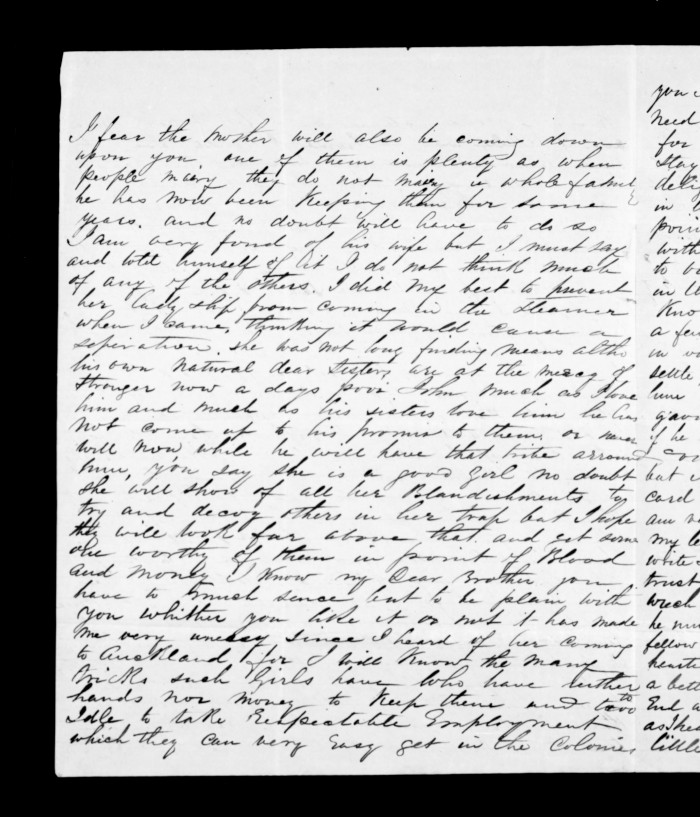 I fear the Mother will also be coming down
upon you one of them is plenty as when
people marry they do not marry a whole famil
he has now been Keeping them for some
years. and no doubt will have to do so
I am very fond of his wife but I must say
and will himself of it I do not think much
of any of the others. I did my best to prevent
her lady ship from coming in the Steamer
when I came, thinking it would cause a
seperation. she was not long finding means altho
his own Natural dear Sisters are at the mercy of
Stronger now a days poor John much as I love
him and much as his sisters love him he has
not come up to his promise to them. or never
will now while he will have that tribe arround
him, you say she is a good girl no doubt
she will show of all her Blandishments to
try and decoy others in her trap but I hope
they will look far above that and get some
one worthy of them in point of Blood
and money I know my Dear Brother you
have to much sence but to be plain with
you whither you like it or not it has made
me very uneasy since I heard of her coming
to Auckland, for I will Know the many
tricks such Girls have who have neither
hands nor money to Keep them and too
Idle to take Respectable Employment
which they can very Easy get in the Colonies
you
need
for
stay
in
with
to
in
Kno
a
in
settle
he
but
card
my
write
trust
he
fellow
a
End
little